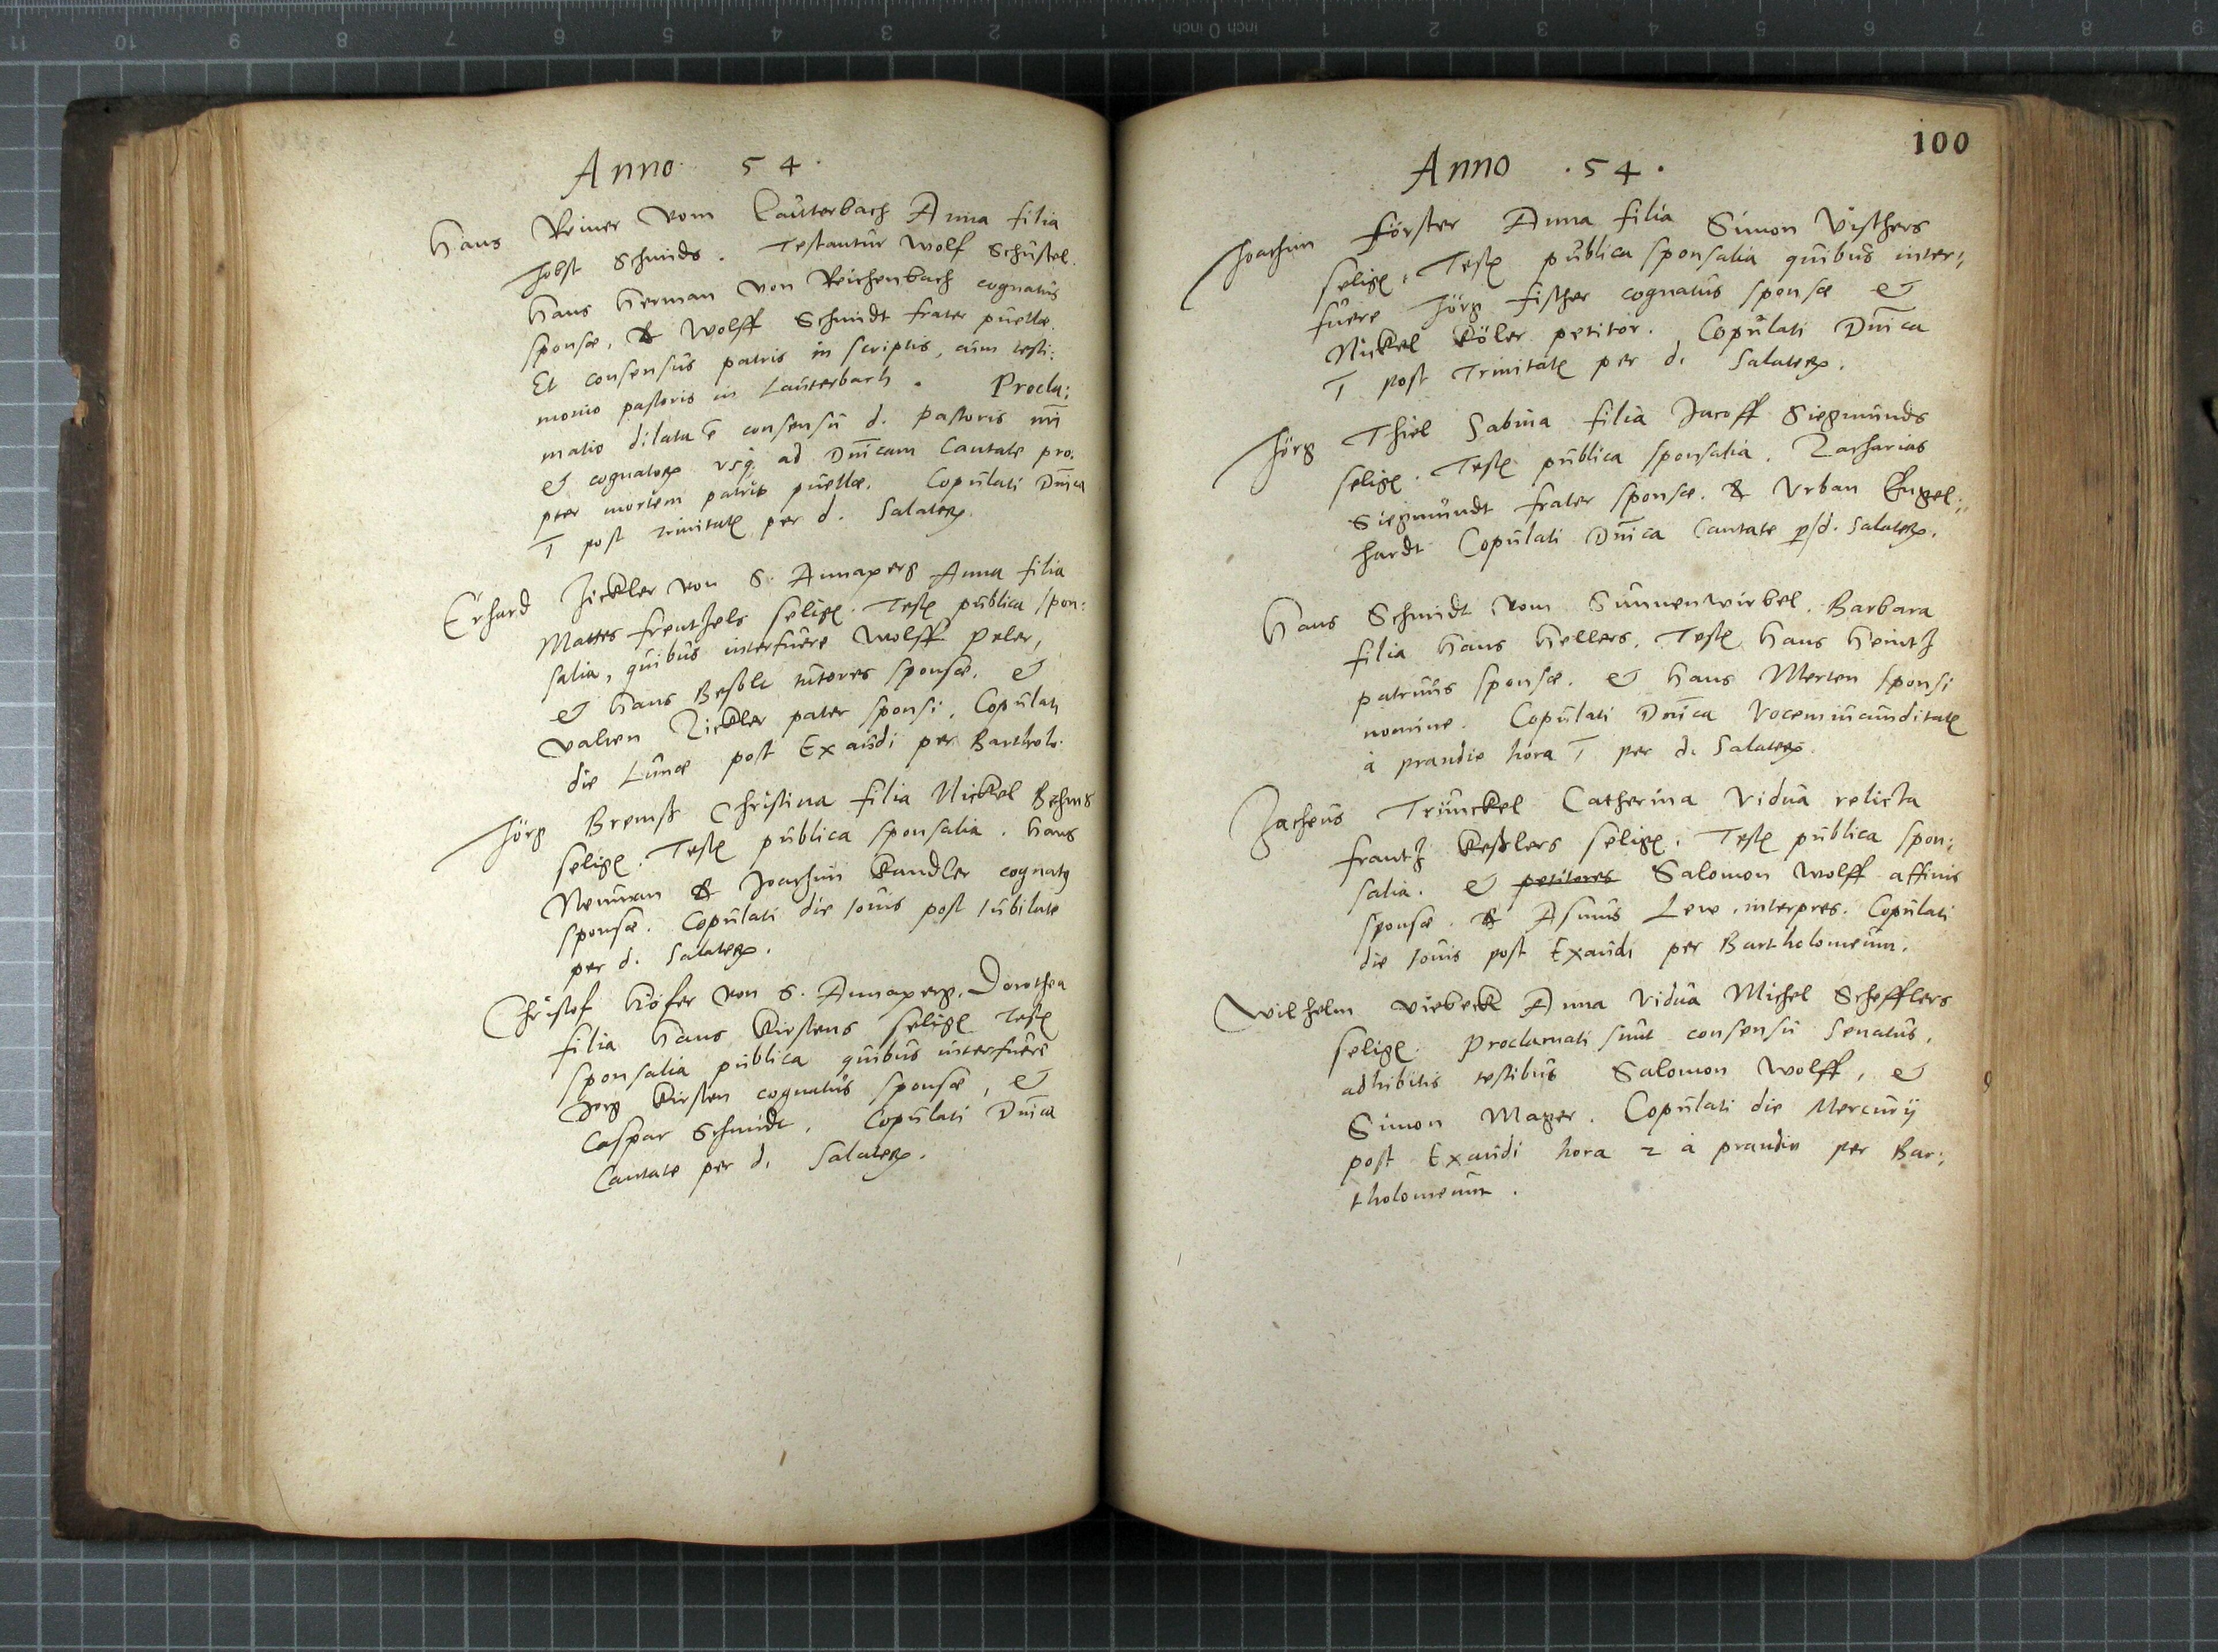 Anno 54.
Hans Reiner vom Lauterbach Anna filia
Jobst Schmids. Testantur Wolf Schüstel.
Hans Herman von Reichenbach cognatus
sponsæ, & Wolff Schmidt frater puellæ.
Et consensus patris in scriptis, cum testi:
monio pastoris in Lauterbach. Procla:
matio dilata ē consensu d. pastoris
& cognator vsq ad Dnicam Cantate pro:
pter mortem patris puellæ. Copulati Dnica
1 post trinitat per d. Salater.
Erhard Zickler von S. Annaperg Anna filia
Mattes frentzels selig. Test publica spon:
salia, quibus interfuere Wolff peler,
& Hans tutores sponsæ. &
valten Zickler pater sponsi. Copulati
die Lunæ post Exaudi per Bartholo:
Jörg Bremss Christina filia Nickel Behms
selig. Test publica sponsalia. Hans
Neuman & Joachim Kandler cognat
sponsæ. Copulati die Iouis post Iubilate
per d. Salater.
Christof Höfer von S. Annaperg. Dorothea
filia Hans Kirstens selig Test
sponsalia publica quibus interfuere
Jorg Kirsten cognatus sponsæ, &
Caspar Schmidt. Copulati Dnica
Cantate per d. Salater.
100
Anno .54.
Joachim Förster Anna filia Simon Vischers
selig. Test publica sponsalia quibus inter:
fuere Jörg fischer cognatus sponsæ &
Nickel Köler petitor. Copulati Dnica
1 post Trinitat per d. Salater.
Jörg Thiel Sabina filia Jacoff Siegmunds
selig. Test publica sponsalia. Zacharias
Siegmundt frater sponsæ. & Vrban Engel:
hardt Copulati Dnica Cantate p d. Salater.
Hans Schmidt vom Sunnenwirbel. Barbara
filia Hans Hellers. Test Hans Heintz
patruus sponsæ. & Hans Merten sponsi
nomine. Copulati Dnica Vocem iucunditat
à prandio hora 1 per d. Salater.
Zacheus Trünckel Catherina Vidua relicta
frantz Kesslers selig. Test publica spon:
salia. & petitores Salomon Wolff affinis
sponsæ. & Asmus Lew, interpres. Copulati
die Iouis post Exaudi per Bartholomeum.
Wilhelm Viebeck Anna Vidua Michel Schefflers
selig. Proclamati sunt consensu Senatus,
adhibitis testibus Salomon Wolff, &
Simon Mager. Copulati die Mercurij
post Exaudi hora 2 à prandio per Bar:
tholomeum.